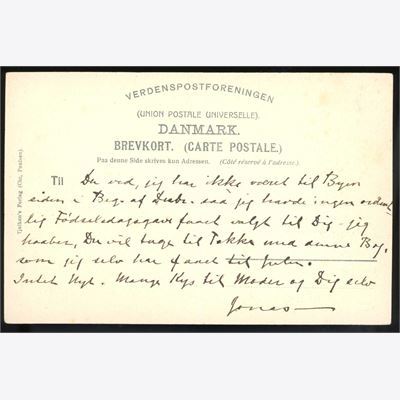 VERDENSPOSTFORENINGEN
(UNION POSTALE UNIVERSELLE).
DANMARK.
BREVKORT. (CARTE POSTALE.)
Paa denne Side skrives kun Adressen. (Côté réservé à l'adresse.)
Til Du ved, jeg har ikke været til Byen
siden i Beg. af Decbr. saa jeg havde ingen ordent-
lig Fødselsdagsgave faaet valgt til Dig - jeg
haaber, Du vil tage til Takke med denne Bog,
som jeg selv har faaet til Julen.
Intet Nyt. Mange Kys til Moder og Dig selv
Jonas
Tjelhan's Forlag (Chr. Poulsen).